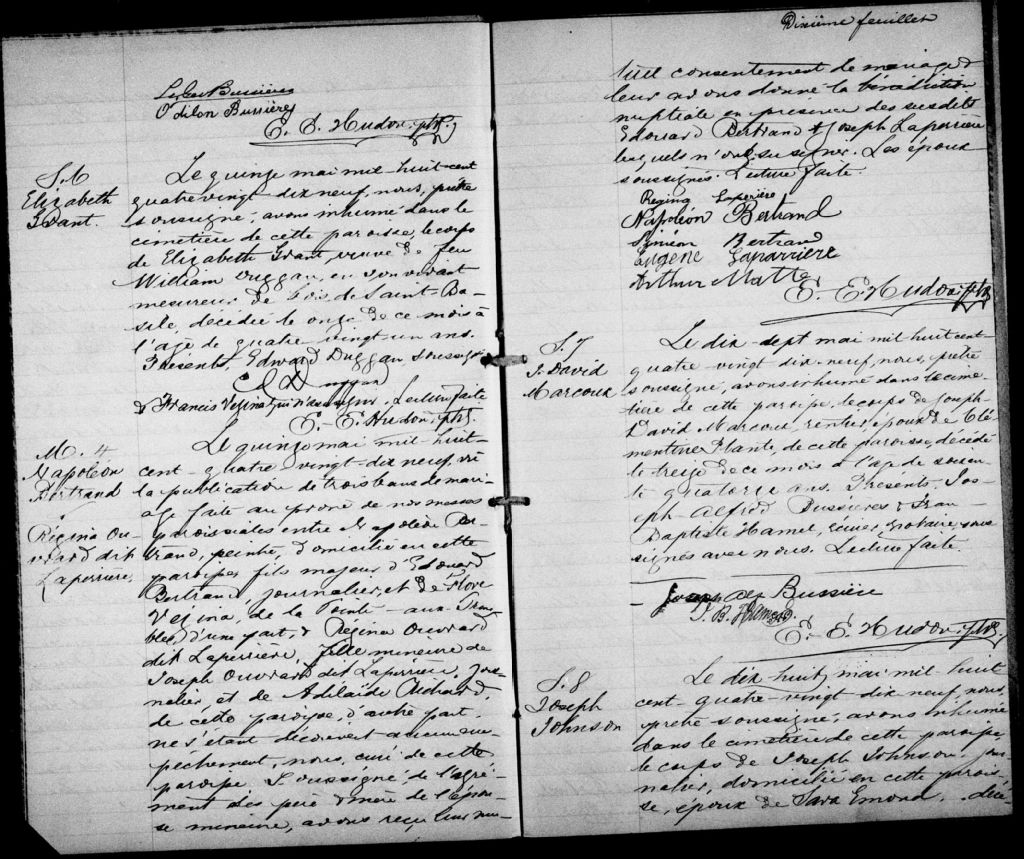 Odilon Bussières
E. E. Hudon, ptre.
S. 6
Elizabeth
Grant.
Le quinze mai mil-huit-cent
quatre vingt dix neuf, nous, prêtre
soussigné, avons inhumé dans le
cimetière de cette paroisse, le corps
de Elizabeth Grant, veuve de feu
William Duggan, en son vivant
mesureur de bois de Saint-Ba-
sile, décédée le onze de ce mois à
l'age de quatre vingt-un ans.
Présents, Edward Duggan, soussigné
& Francis Vézina qui n'a su signer. Lecture faite
E. E. Hudon, ptre.
M. 4
Napoléon
Bertrand
&
Régina Ou-
vrard dit
Laperrière
Le quinze mai mil-huit-
cent-quatre vingt-dix neuf, vu
la publication de trois bans de mari-
age faite au prône de nos messes
paroissiales entre Napoléon Ber-
trand, peintre, domicilié en cette
paroisse, fils majeur d'Edouard
Bertrand, journalier, et de Flore
Vézina, de la Pointe-aux-Trem-
bles, d'une part, & Régina Ouvrard
dit Laperrière, fille mineure de
Joseph Ouvrard dit Laperrière, jour-
nalier, et de Adélaïde Richard,
de cette paroisse, d'autre part,
ne s'étant découvert aucun em-
pêchement, nous, curé de cette
paroisse soussigné, de l'agré-
ment des père & mère de l'épou-
se mineure, avons reçu leur mu-
Dixième feuillet
tuel consentement de mariage &
leur avons donné la bénédiction
nuptiale en présence des susdits
Edouard Bertrand & Joseph Laperrière
lesquels n'ont su signer. Les époux
soussignés. Lecture faite.
Regina Laperière
Napoléon Bertrand
Siméon Bertrand
Eugène Laparrière
Arthur Matte
E. E. Hudon, ptre
S. 7
J. David
Marcoux
Le dix-sept mai mil huit cent-
quatre vingt dix-neuf, nous, prêtre
soussigné, avons inhumé dans le cime-
tière de cette paroisse, le corps de Joseph
David Marcoux, rentier, époux de Clé-
mentine Plante, de cette paroisse, décédé
le treize de ce mois à l'age de soixan-
te quatorze ans. Présents, Jos-
eph-Alfred Bussières & Jean-
Baptiste Hamel, Notaire, sous-
signés avec nous. Lecture faite.
Joseph Bussière
J. B. Hamel
E. E. Hudon, ptre
S. 8
Joseph
Johnson
Le dix huit mai mil huit
cent-quatre-vingt dix neuf, nous,
prêtre soussigné, avons inhumé
dans le cimetière de cette paroisse,
le corps de Joseph Johnson, jour-
nalier, domicilié en cette parois-
se, époux de Sara Emond, décé